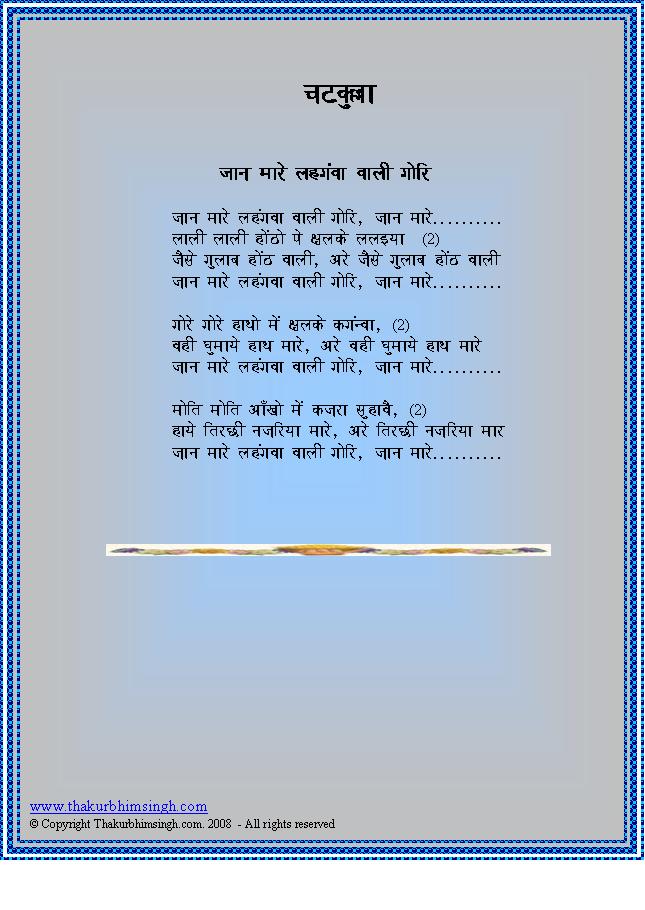 चटकुल्ला
जान मारे लहगंवा वाली गोरि
जान मारे लहंगवा वाली गोरि, जान मारे..........
लाली लाली होंठो पे क्षलके ललइया (2)
जैसे गुलाब होंठ वाली, अरे जैसे गुलाब होंठ वाली
जान मारे लहंगवा वाली गोरि, जान मारे..........
गोरे गोरे हाथो में क्षलके कगंन्वा, (2)
वही घुमाये हाथ मारे, अरे वही घुमाये हाथ मारे
जान मारे लहंगवा वाली गोरि, जान मारे..........
मोति मोति आँखो में कजरा सुहावै, (2)
हाये तिरछी नजरिया मारे, अरे तिरछी नजरिया मार
जान मारे लहंगवा वाली गोरि, जान मारे..........
www.thakurbhimsingh.com
© Copyright Thakurbhimsingh.com. 2008 - All rights reserved